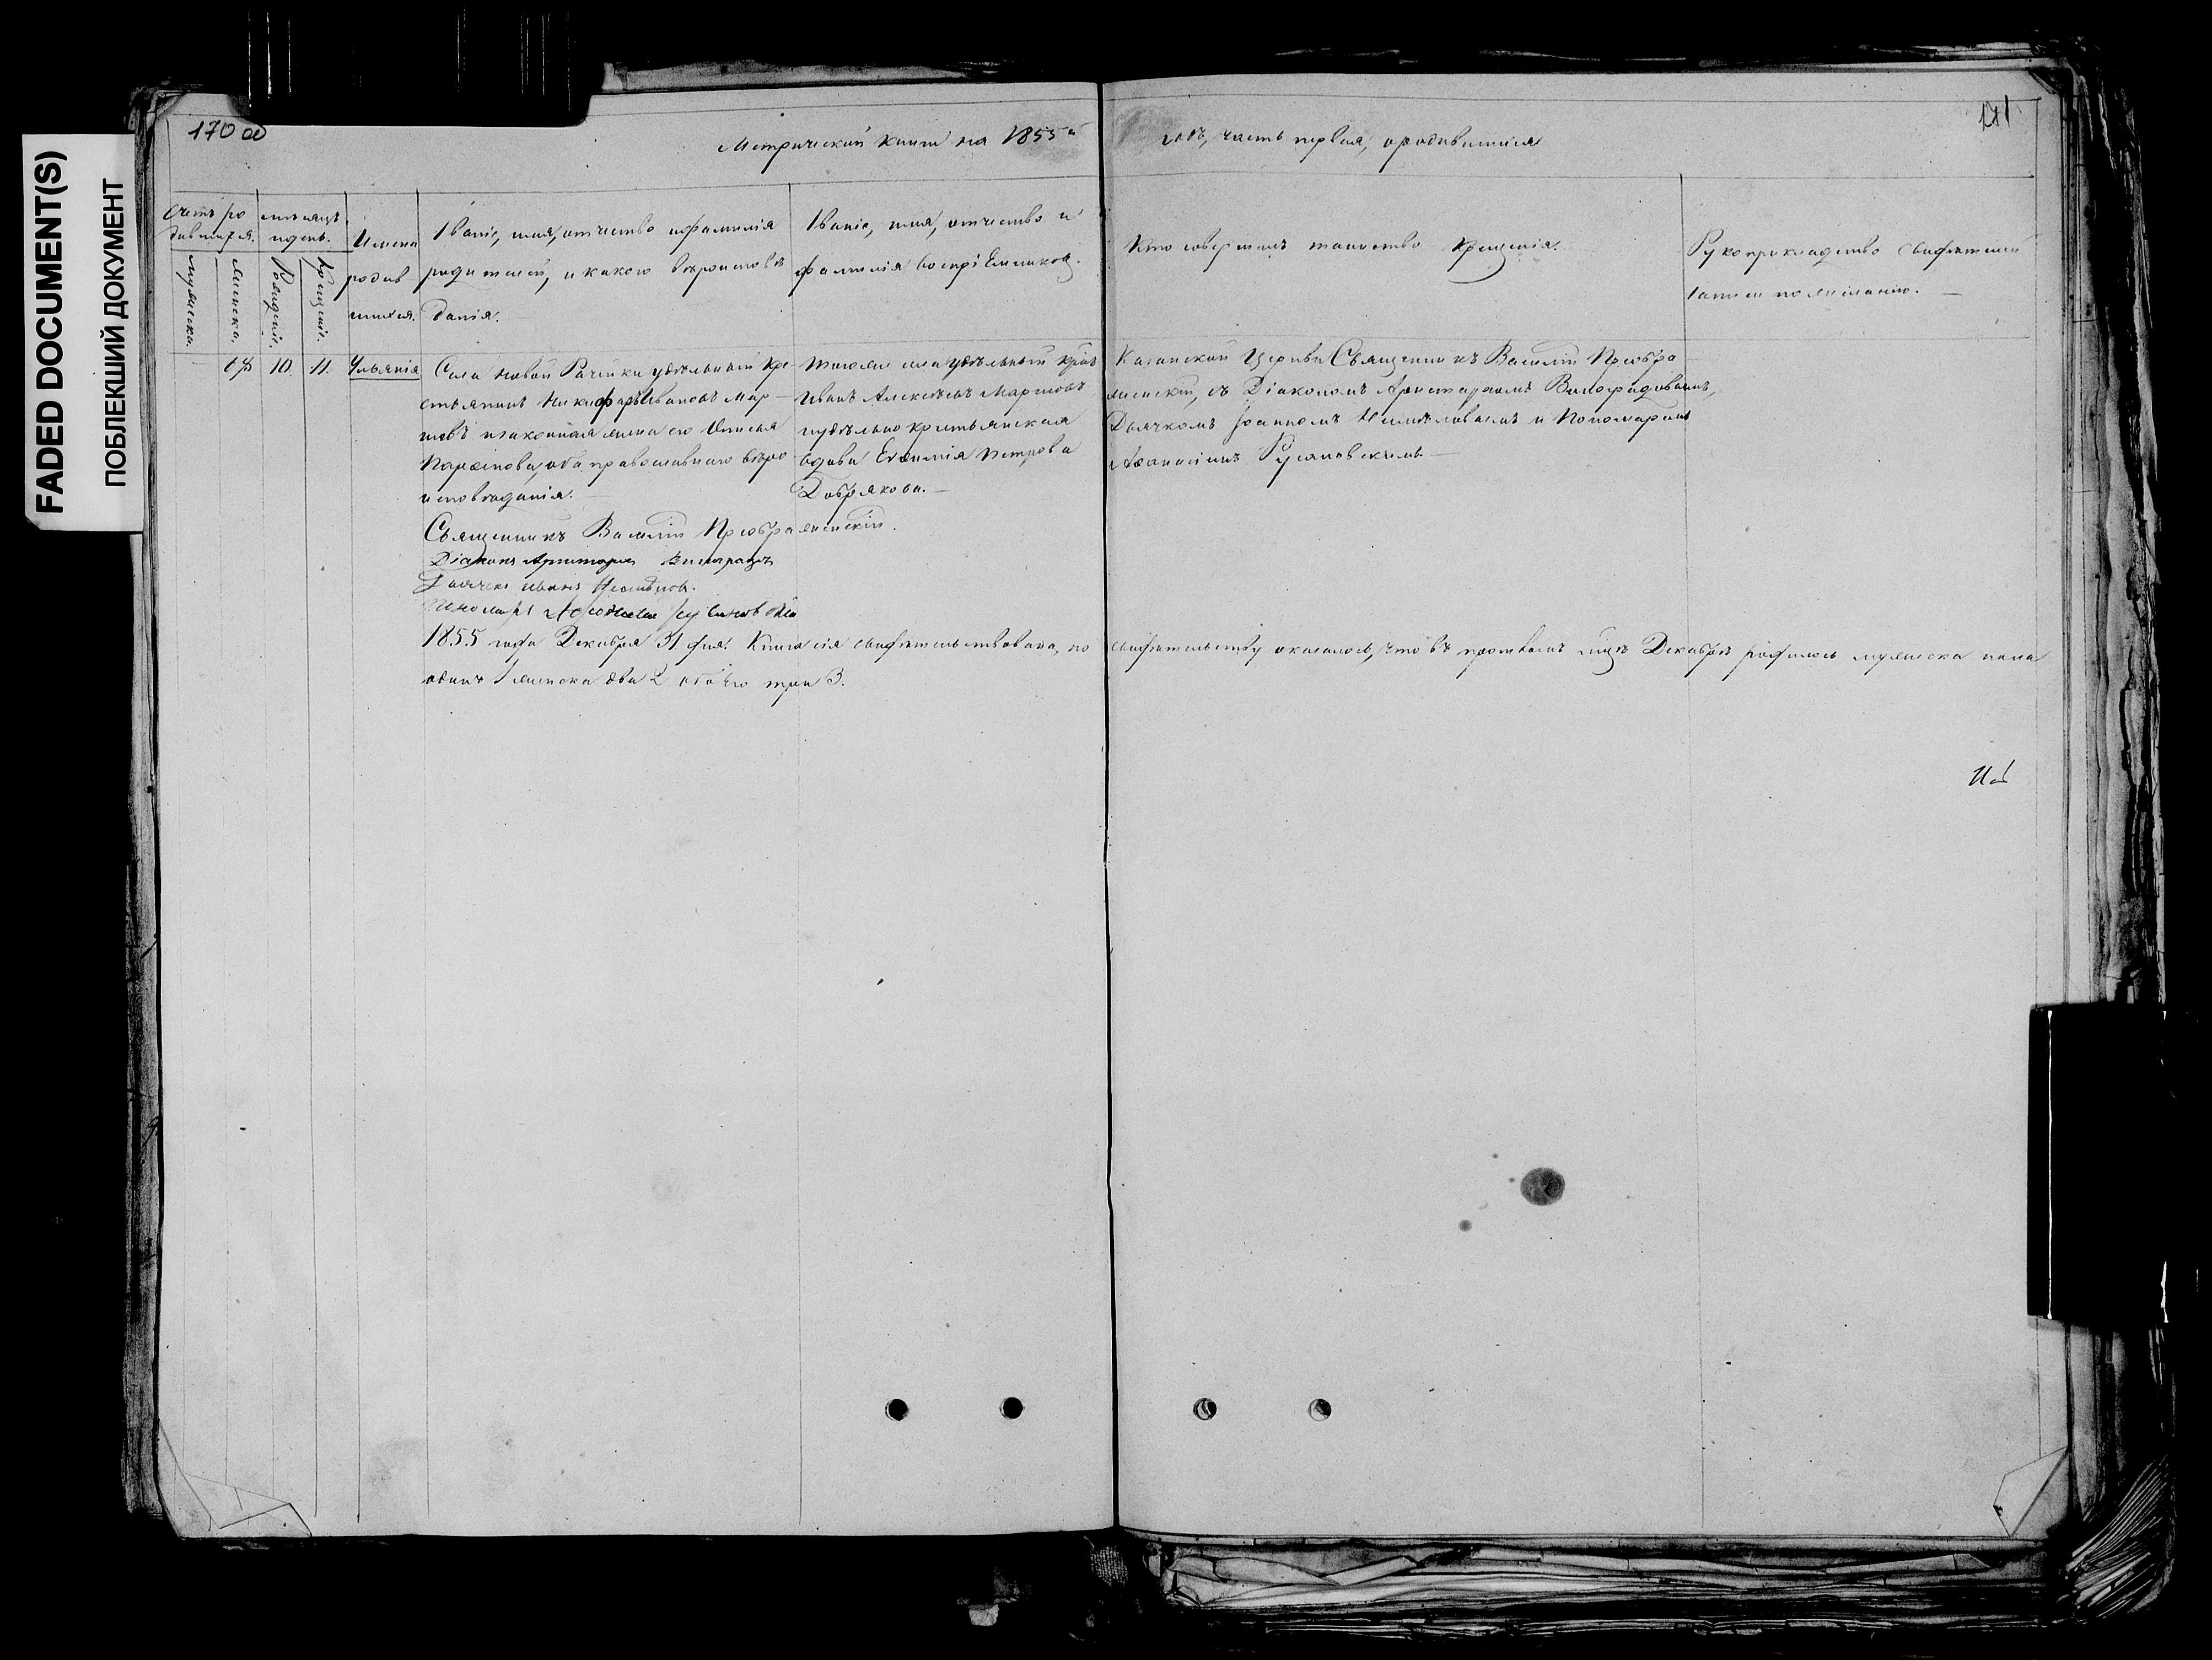 FADED DOCUMENT(S)
ПОБЛЕКШИЙ ДОКУМЕНТ
170 об
Метрической книги на 1855й
годъ, часть первая, о родившихся
Счетъ ро
дившихся.
мужеска.
женска.
мѣсяцъ
и день.
Рожденiя.
Крещенiя.
Имена
родив
шихся.
Званiе, имя, отчество и фамилiя
родителей, и какого вѣроисповѣ
данiя.
Званiе, имя, отчество и
фамилiя воспрiемниковъ.
Кто совершалъ таинство крещенiя.
Рукоприкладство свидѣтелей
записи по желанiю.
10.
11.
Ульянiя
Села Новой Рачейки удѣльный кре-
стьянинъ Никифоръ Ивановъ Мар-
и законная жена его
оба православнаго вѣро
исповѣданiя.
тогоже села удѣльный крест
Иванъ Алексѣевъ
и удѣльно крестьянская
вдова Евфимiя Петрова
Добрякова.
Казанской Церкви Священникъ Василiй Преобра
женскiй, съ Дiакономъ Аристархомъ Виноградовымъ,
Дьячкомъ Iоанномъ и Пономаремъ
Афанасiемъ
Священникъ Василiй Преображенскiй.
Дiаконъ Аристархъ Виноградовъ
Дьячекъ Иванъ
Пономарь
1855 года Декабря 31 дня. Книга сiя свидѣтельствована, по
свидѣтельству оказалось, что въ прошломъ мцѣ Декабрѣ родилось мужеска пола
одинъ 1 женска два 2 обоего три 3.